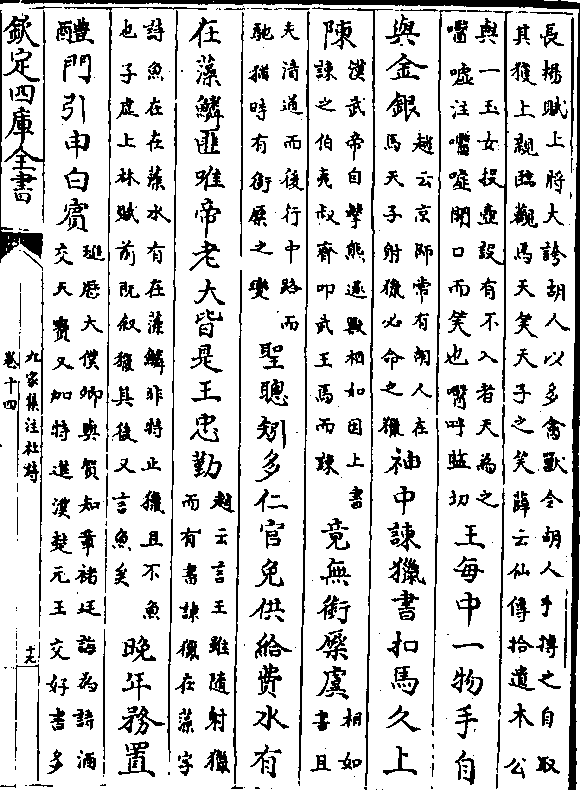 長楊賦上將大誇胡人以多禽獸令胡人手搏之自取
其獲上親臨觀焉天笑天子之笑薛云仙傳拾遺木公
與一玉女投壺設有不入者天為之
噓注噓開口而笑也呼監切
王每中一物手自
與金銀
趙云京師常有胡人在
馬天子射獵必命之獵
袖中諫獵書扣馬久上
陳
漢武帝自擊熊逐獸相如因上書
諫之伯夷叔齊叩武王馬而諫
竟無銜橛虞
相如
書且
夫清道而後行中路而
馳猶時有銜橛之變
聖聰矧多仁官免供給費水有
在藻鱗匪唯帝老大皆是王忠勤
趙云言王雖随射獵
而有書諫獵在藻字
詩魚在在藻水有在藻鱗非特止獵且不魚
也子虚上林賦前既叙獵其後又言魚矣
晚年務置
醴門引申白賓
璡歴大僕卿與賀知章褚廷誨為詩酒
交天寶又加特進漢楚元王交好書多
欽定四庫全書
九家集注杜詩
卷十四
十九